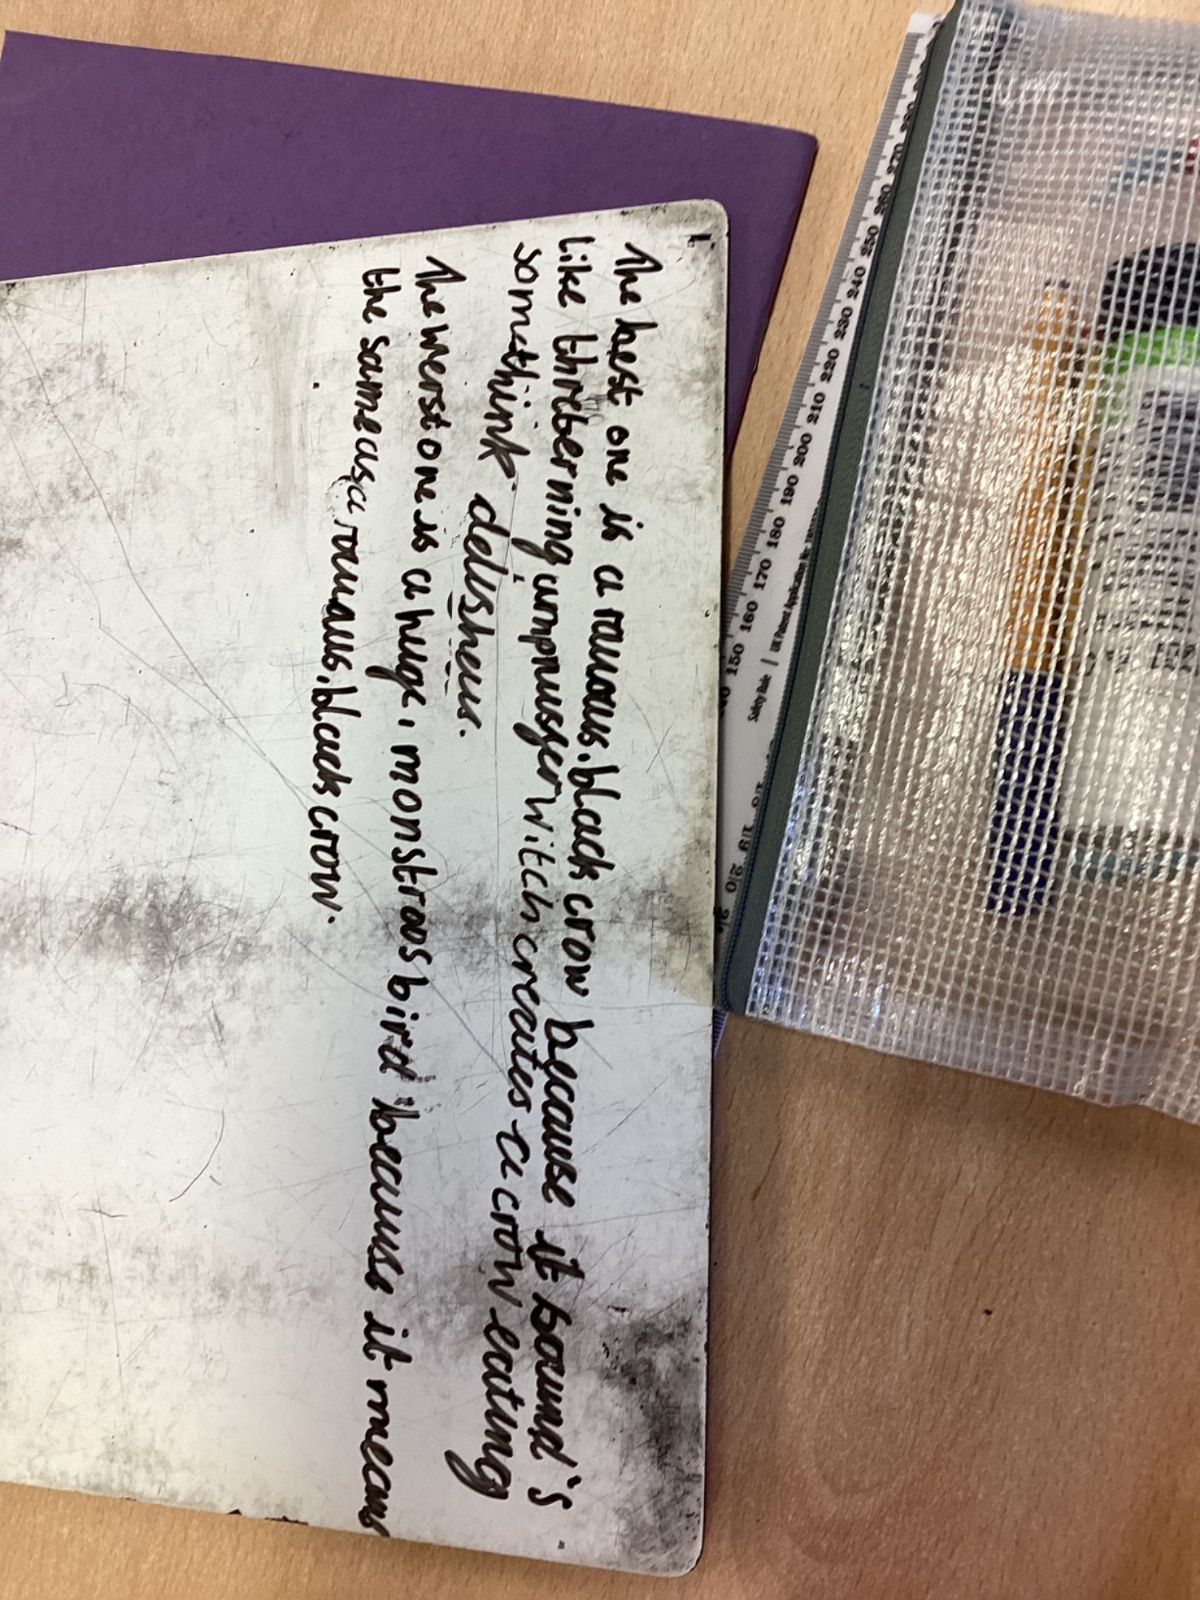 The best one is a ravaous, black crow because it sound's
like three berning ampuusjer witch creates a crow eating
somethink delisheus.
The werst one is a huge, monstroos bird because it means
the same as a ravaous, black crow.
270
260
250
240
230
220
210
200
190
180
170
160
150
Safety Rule | UK Patent Application No